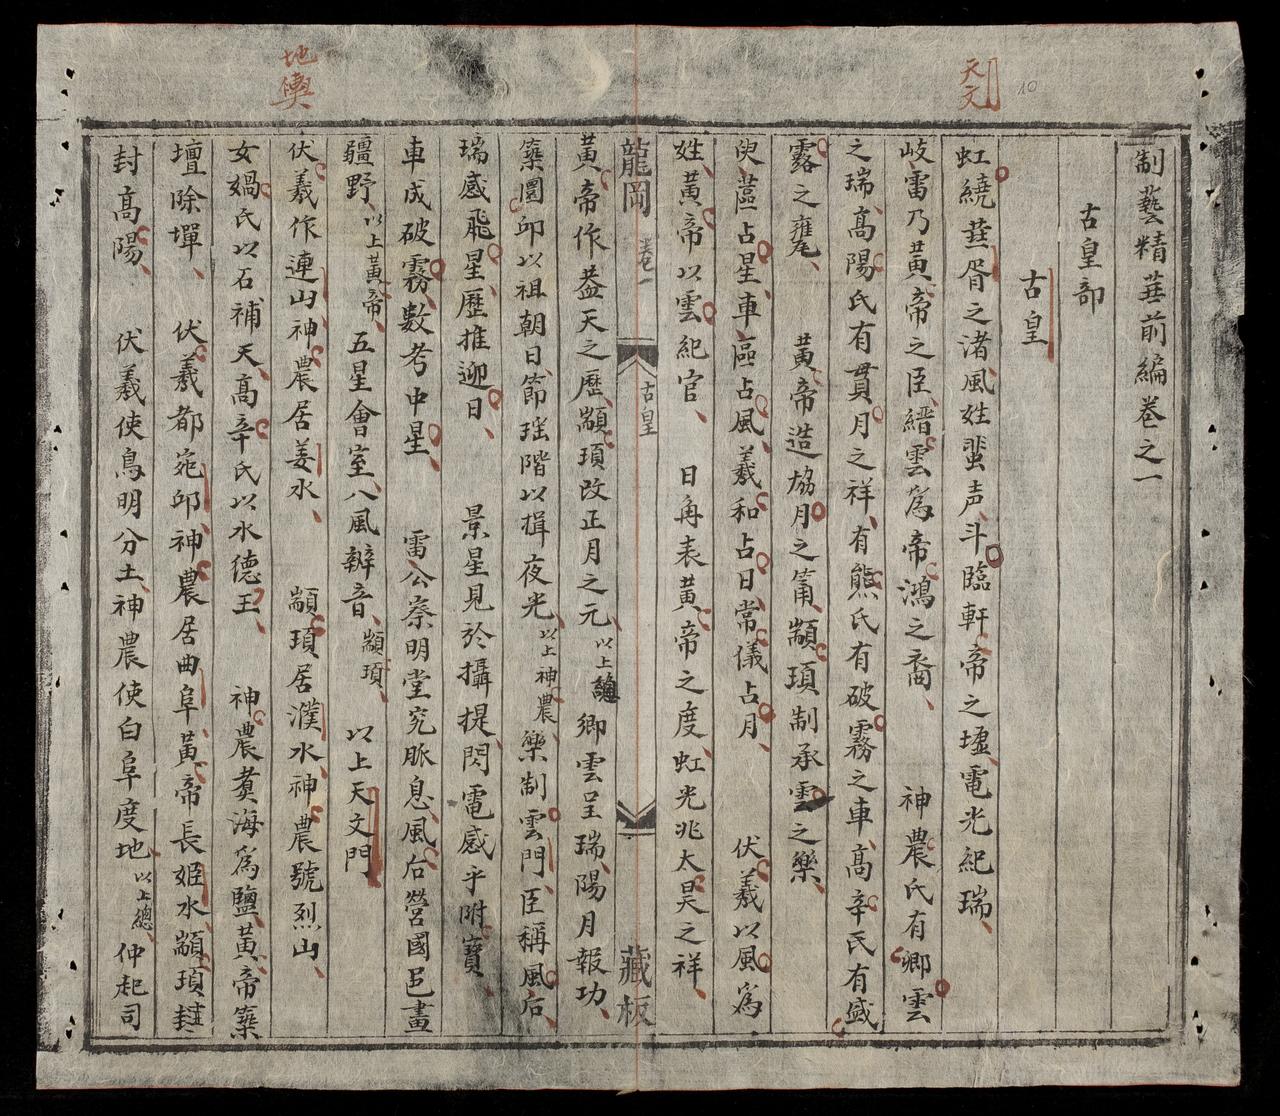 天文
10
制藝精華前編卷之一
古皇部
古皇
虹繞華胥之渚風姓蜚声斗臨軒帝之墟電光紀瑞
岐雷乃黃帝之臣縉雲為帝鴻之裔 神農氏有卿雲
之瑞高陽氏有貫月之祥有熊氏有破霧之車高辛氏有盛
露之甕 黃帝造協月之筩顓頊制承雲之樂
臾蓲占星車區占風羲和占日常儀占月 伏羲以風為
姓黃帝以雲紀官 日角表黃帝之度虹光兆太昊之祥
龍岡 卷一 古皇 藏板
黃帝作蓋天之歷顓頊改正月之元以上總 卿雲呈瑞陽月報功
築圜邱以祖朝日節瑤階以揖夜光以上神農 樂制雲門臣稱風后
瑞感飛星歷推迎日 景星見於攝提閃電感乎附寶
車成破霧數考中星 雷公察明堂究脈息風后營國邑畫
疆野以上黃帝 五星會室八風辨音顓頊 以上天文門
地輿
伏羲作連山神農居姜水 顓頊居濮水神農號烈山
女媧氏以石補天高辛氏以水德王 神農煑海為鹽黃帝築
壇除墠 伏羲都宛邱神農居曲阜黃帝長姬水顓頊封
封高陽 伏羲使鳥明分土神農使白阜度地以上總 仲起司